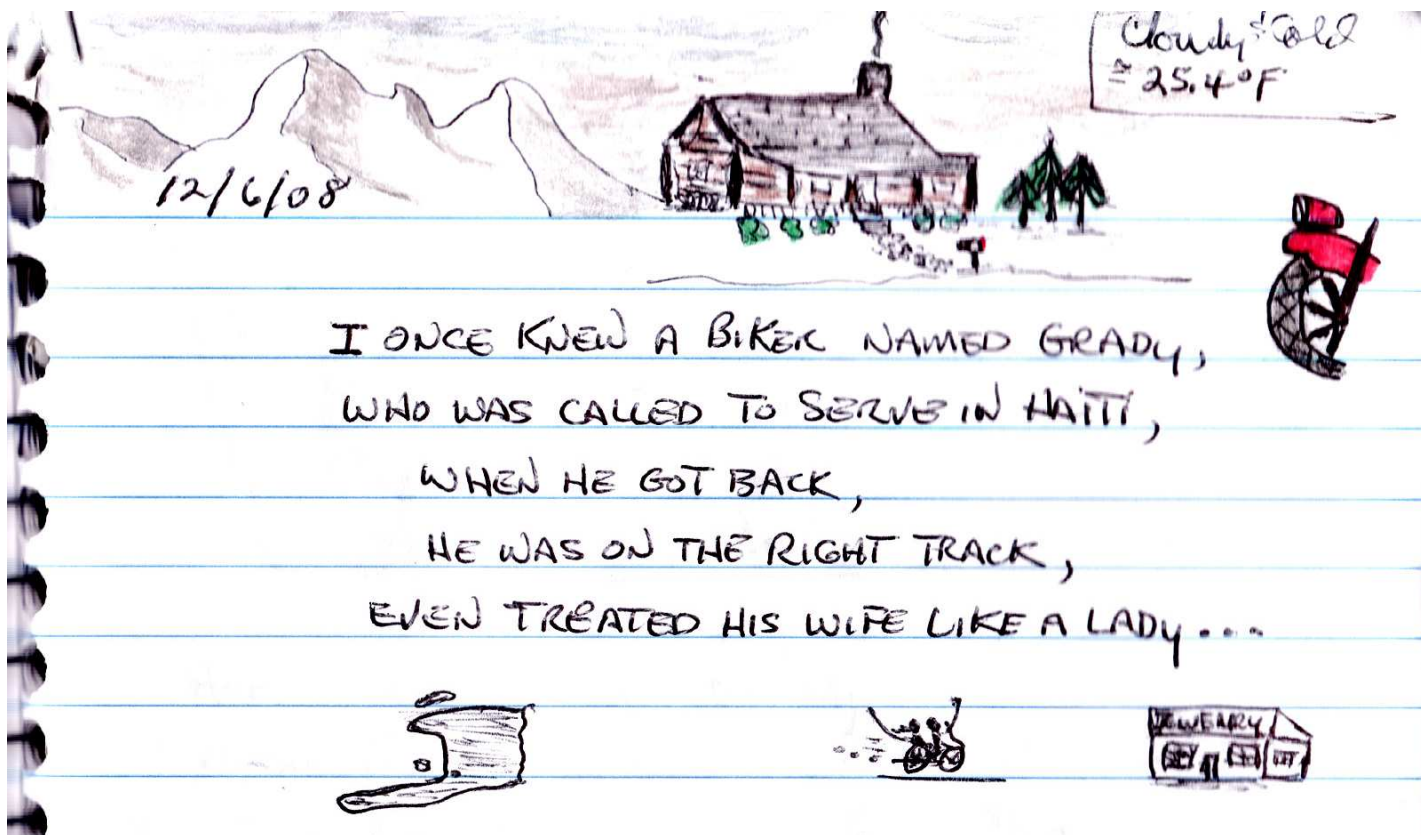 Cloudy & Cold
≅ 25.4°F
12/6/08
I ONCE KNEW A BIKER NAMED GRADY,
WHO WAS CALLED TO SERVE IN HAITI,
WHEN HE GOT BACK,
HE WAS ON THE RIGHT TRACK,
EVEN TREATED HIS WIFE LIKE A LADY...
JEWELARY